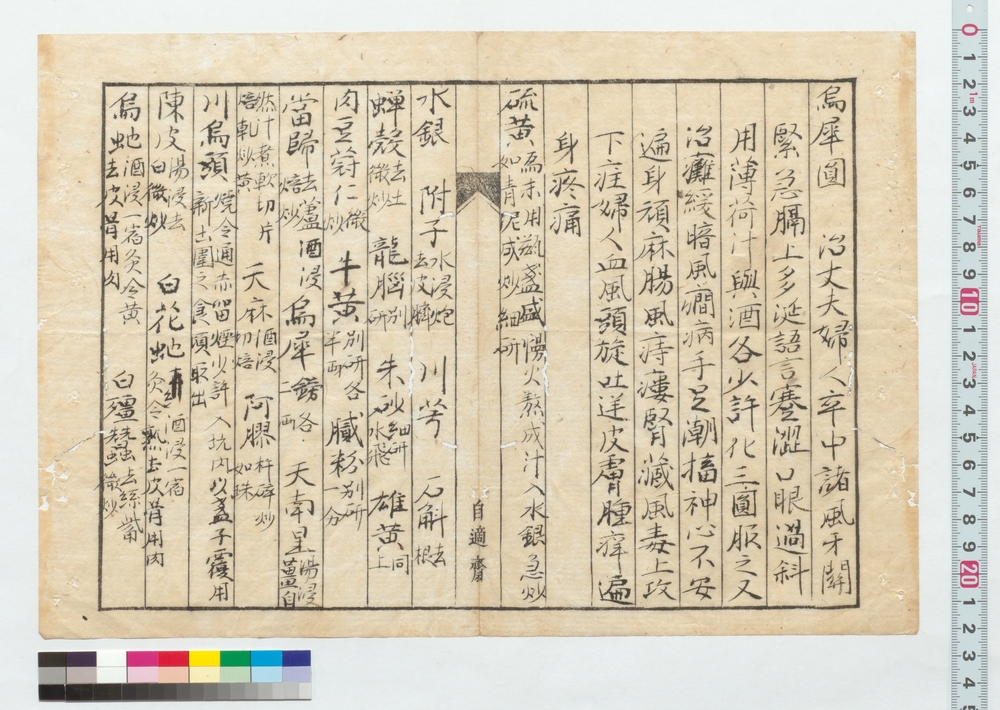 烏犀圓 治丈夫婦人卒中諸風牙關
緊急膈上多涎語言蹇澀口眼過斜
用薄荷汁與酒各少許化三圓服之又
治癱緩暗風癇病手足潮搐神心不安
遍身頑麻腸風痔瘻腎藏風毒上攻
下注婦人血風頭旋吐逆皮膚腫痒遍
身疼痛
硫黃為末用瓷盞盛慢火熬成汁入水銀急炒如青泥成炒細研
自適齋
水銀 附子水浸炮去皮臍 川芎 石斛去根
蟬殼去土微炒 龍腦別研 朱砂細研水飛 雄黃同上
肉豆蔻仁微炒 牛黃別研各半兩 膩粉別研一分
當歸去蘆酒浸焙炒 烏犀鎊各二兩 天南星湯浸薑自
然汁煮軟切片焙乾炒黃 天麻酒浸切焙 阿膠杵碎炒如珠
川烏頭燒令通赤留煙少許入坑內以盞子覆用新土圍之食頃取出
陳皮湯浸去白微炒 白花蛇酒浸一宿灸令熟去皮骨用肉
烏蛇酒浸一宿灸令黃去皮骨用肉 白殭蠶去絲觜微炒